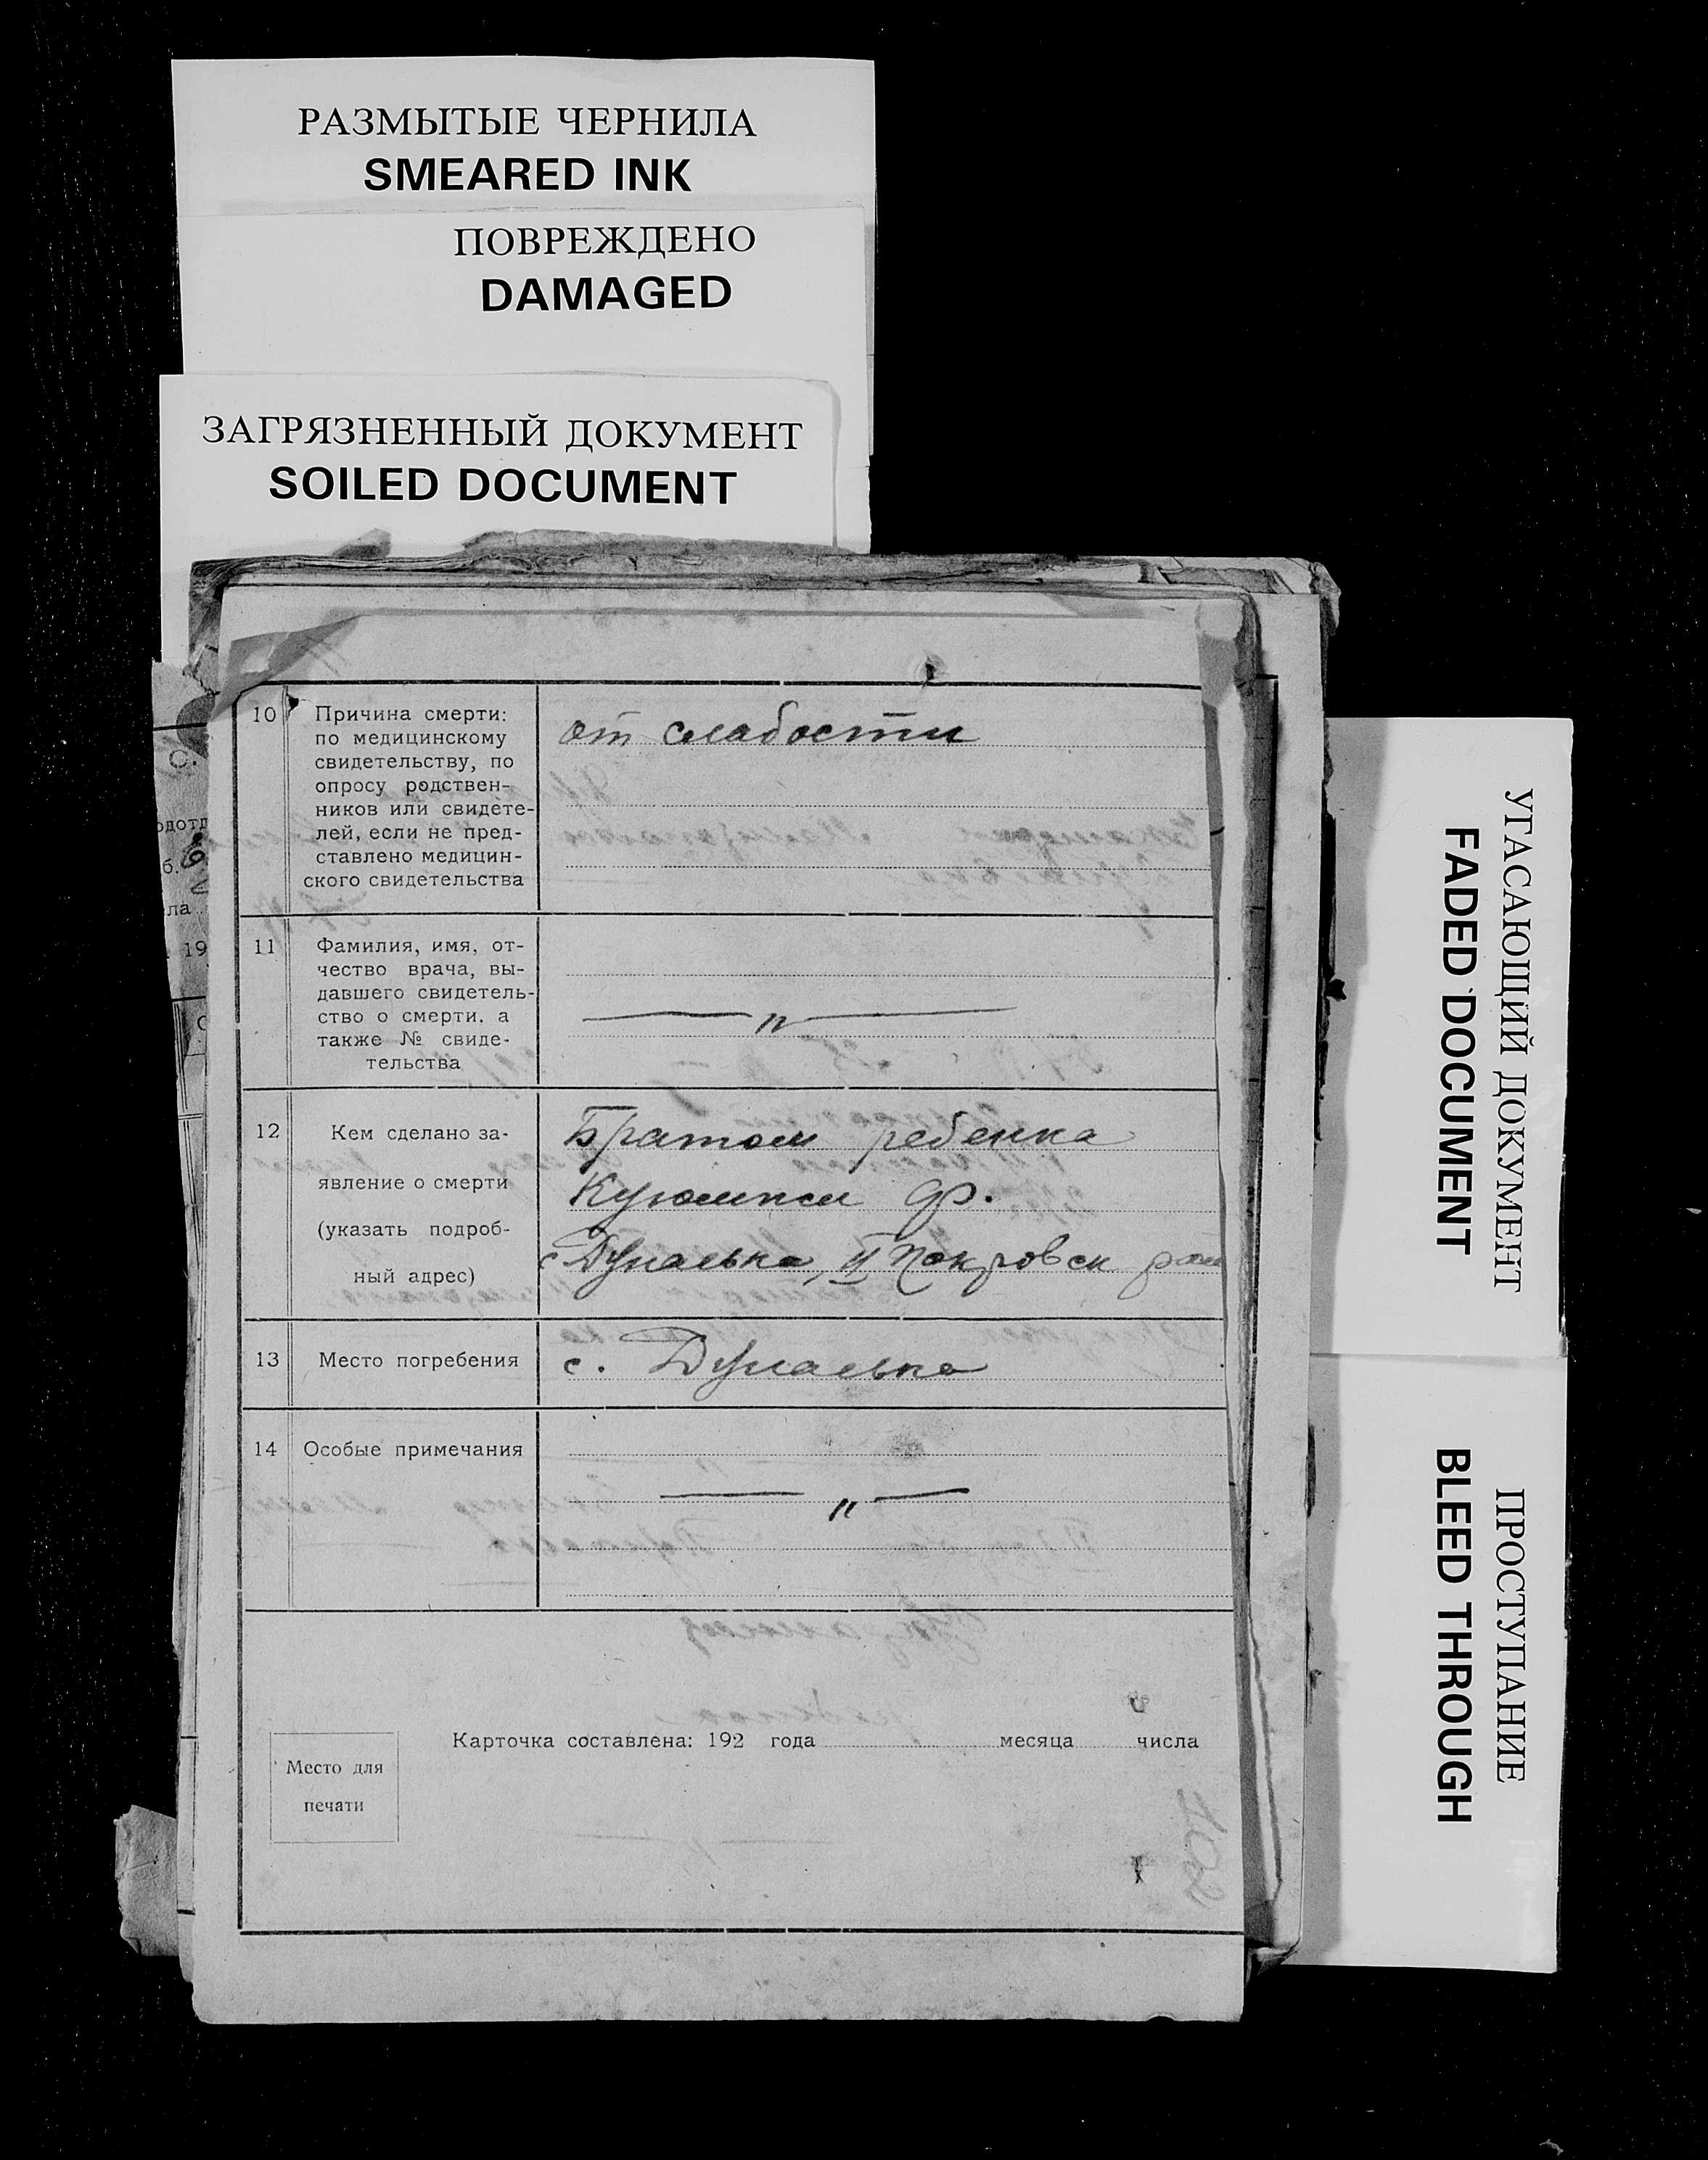 РАЗМЫТЫЕ ЧЕРНИЛА
SMEARED INK
ПОВРЕЖДЕНО
DAMAGED
ЗАГРЯЗНЕННЫЙ ДОКУМЕНТ
SOILED DOCUMENT
10
Причина смерти:
по медицинскому
свидетельству, по
опросу родствен-
ников или свидете-
лей, если не пред-
ставлено медицин-
ского свидетельства
от слабости
11
Фамилия, имя, от-
чество врача, вы-
давшего свидетель-
ство о смерти, а
также № свиде-
тельства
— " —
12
Кем сделано за-
явление о смерти
(указать подроб-
ный адрес)
Братом ребенка
Ф.
с II Покровск
13
Место погребения
с.
14
Особые примечания
— " —
Карточка составлена: 192 года месяца числа
Место для
печати
УГАСАЮЩИЙ ДОКУМЕНТ
FADED DOCUMENT
ПРОСТУПАНИЕ
BLEED THROUGH